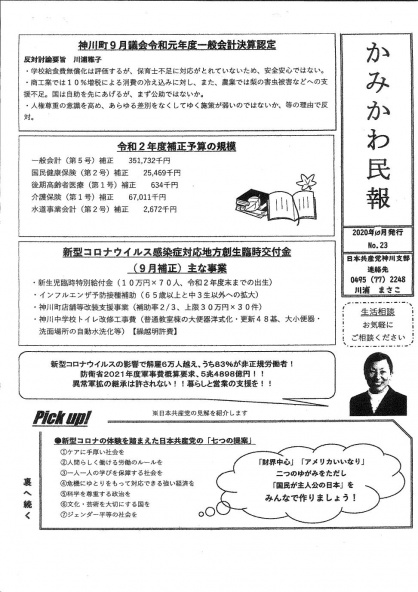 かみかわ民報
2020年10月発行
No.23
日本共産党神川支部
連絡先
0495（77）2248
川浦 まさこ
生活相談
お気軽に
ご相談ください
神川町９月議会令和元年度一般会計決算認定
反対討論要旨 川浦雅子
・学校給食費無償化は評価するが、保育士不足に対応がとれていないため、安全安心ではない。
・商工業では１０％増税による消費の冷え込みに対し、また、農業では梨の雹害被害などへの支
援不足。国は自助を先にあげるが、まず公助ではないか。
・人権尊重の意識を高め、あらゆる差別をなくしてゆく施策が弱いのではないか、等の理由で反
対。
令和２年度補正予算の規模
一般会計（第５号）補正 351,732千円
国民健康保険（第２号）補正 25,469千円
後期高齢者医療（第１号）補正 634千円
介護保険（第１号）補正 67,011千円
水道事業会計（第２号）補正 2,672千円
新型コロナウイルス感染症対応地方創生臨時交付金
（９月補正）主な事業
・新生児臨時特別給付金（１０万円×７０人、令和２年度末までの出生）
・インフルエンザ予防接種補助（６５歳以上と中３生以外への拡大）
・神川町店舗等改装支援事業（補助率２/３、上限３０万円×３０件）
・神川中学校トイレ改修工事費（普通教室棟の大便器洋式化・更新４８基、大小便器・
洗面場所の自動水洗化等）【繰越明許費】
新型コロナウイルスの影響で解雇６万人越え、うち83％が非正規労働者！
防衛省2021年度軍事費概算要求、5兆4898億円！！
異常軍拡の継承は許されない！！暮らしと営業の支援を！！
Pick up!
※日本共産党の見解を紹介します
●新型コロナの体験を踏まえた日本共産党の「七つの提案」
①ケアに手厚い社会を
②人間らしく働ける労働のルールを
③一人一人の学びを保障する社会を
④危機にゆとりをもって対応できる強い経済を
⑤科学を尊重する政治を
⑥文化・芸術を大切にする国を
⑦ジェンダー平等の社会を
「財界中心」「アメリカいいなり」
二つのゆがみをただし
「国民が主人公の日本」を
みんなで作りましょう！
裏へ続く